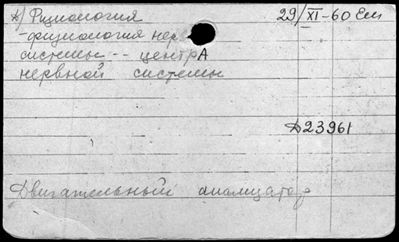 А) Физиология 29/XI-60 Em
- физиология нерв
системы -- центрА
нервной системы
Д23961
Двигательный анализатор